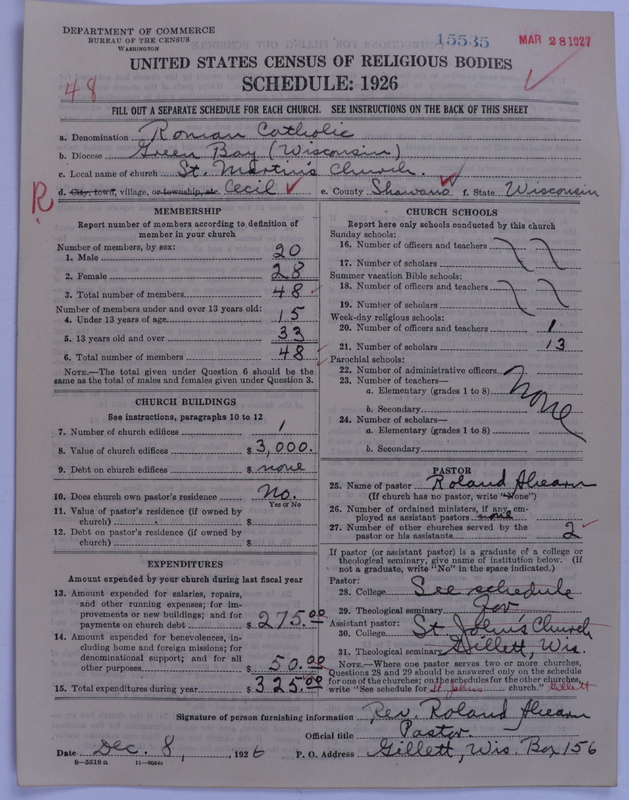 DEPARTMENT OF COMMERCE
BUREAU OF THE CENSUS
WASHINGTON
15535
MAR 28 1927
UNITED STATES CENSUS OF RELIGIOUS BODIES
SCHEDULE: 1926
48
FILL OUT A SEPARATE SCHEDULE FOR EACH CHURCH. SEE INSTRUCTIONS ON THE BACK OF THIS SHEET
a. Denomination Roman Catholic
b. Diocese Green Bay (Wisconsin)
c. Local name of church St. Martin's Church.
R
d. City, town, village, or township, etc. Cecil e. County Shawano f. State Wisconsin
MEMBERSHIP
Report number of members according to definition of
member in your church
Number of members, by sex:
1. Male 20
2. Female 28
3. Total number of members 48
Number of members under and over 13 years old:
4. Under 13 years of age 15
5. 13 years old and over 33
6. Total number of members 48
NOTE.—The total given under Question 6 should be
same as the total of males and females given under Question 3.
CHURCH BUILDINGS
See instructions, paragraphs 10 to 12
7. Number of church edifices 1
8. Value of church edifices $ 3,000.
9. Debt on church edifices $ none
10. Does church own pastor's residence No.
Yes or No
11. Value of pastor's residence (if owned by
church) $
12. Debt on pastor's residence (if owned by
church) $
EXPENDITURES
Amount expended by your church during last fiscal year
13. Amount expended for salaries, repairs,
and other running expenses; for im-
provements or new buildings; and for
payments on church debt $ 275.00
14. Amount expended for benevolences, in-
cluding home and foreign missions; for
denominational support; and for all
other purposes $ 50.00
15. Total expenditures during year $ 325.00
CHURCH SCHOOLS
Report here only schools conducted by this church
Sunday schools:
16. Number of officers and teachers
17. Number of scholars
Summer vacation Bible schools:
18. Number of officers and teachers
19. Number of scholars
Week-day religious schools:
20. Number of officers and teachers 1
21. Number of scholars 13
Parochial schools:
22. Number of administrative officers
23. Number of teachers—
a. Elementary (grades 1 to 8) None
b. Secondary
24. Number of scholars—
a. Elementary (grades 1 to 8)
b. Secondary
PASTOR
25. Name of pastor Roland Ahearn
(If church has no pastor, write "None")
26. Number of ordained ministers, if any, em-
ployed as assistant pastors none
27. Number of other churches served by the
pastor or his assistants 2
If pastor (or assistant pastor) is a graduate of a college or
theological seminary, give name of institution below. (If
not a graduate, write "No" in the space indicated.)
Pastor:
28. College See schedule
29. Theological seminary for
Assistant pastor:
30. College St. John's Church
31. Theological seminary Gillett, Wis.
NOTE.—Where one pastor serves two or more churches,
Questions 28 and 29 should be answered only on the schedule
for one of the churches; on the schedules for the other churches,
write "See schedule for St. Johns church." Gillett
Signature of person furnishing information Rev. Roland Ahearn
Official title Pastor.
Date Dec. 8, 1926 P. O. Address Gillett, Wis. Box 156
8—5518 a